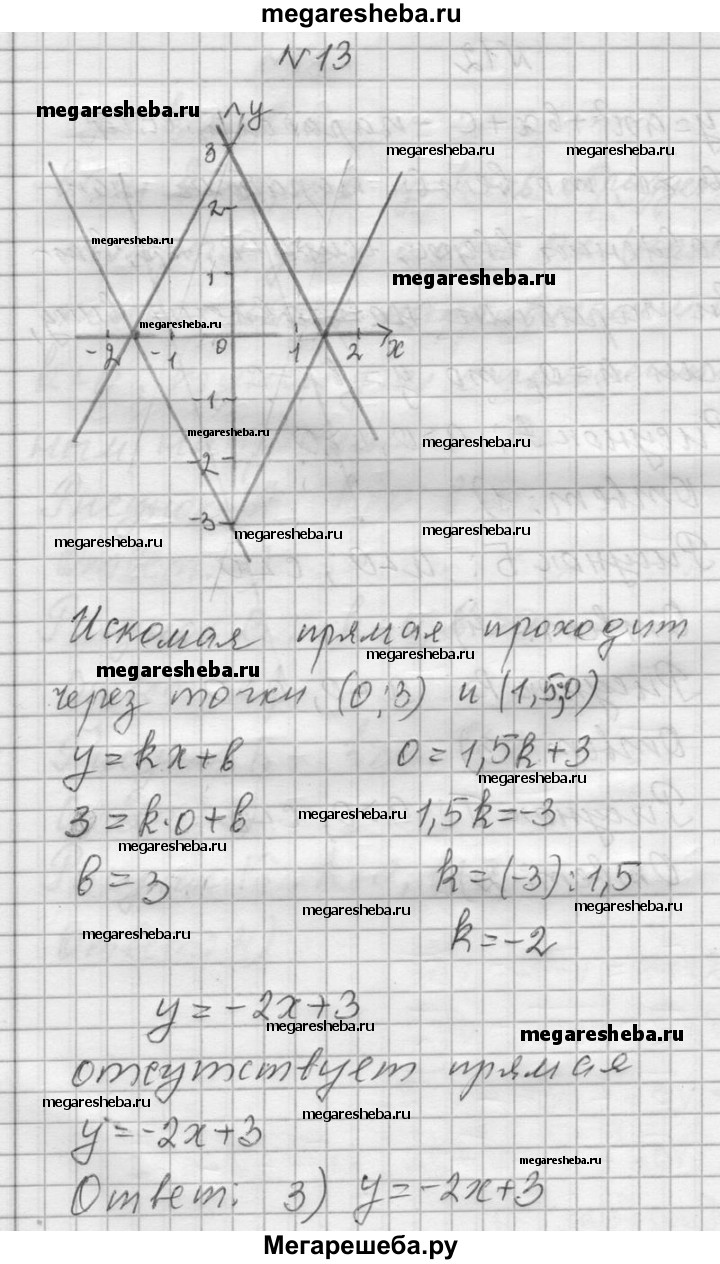 megaresheba.ru
№13
megaresheba.ru
y
3
megaresheba.ru megaresheba.ru
2
megaresheba.ru
1
megaresheba.ru
megaresheba.ru
-2 -1 0 1 2 x
-1
megaresheba.ru
megaresheba.ru
-2
-3
megaresheba.ru
megaresheba.ru
megaresheba.ru
Искомая прямая проходит
megaresheba.ru
megaresheba.ru
через точки (0;3) и (1,5;0)
y=kx+b 0=1,5k+3
megaresheba.ru
3=k·0+b 1,5k=-3
megaresheba.ru
megaresheba.ru
b=3 k=(-3):1,5
megaresheba.ru megaresheba.ru
megaresheba.ru
k=-2
y=-2x+3
megaresheba.ru
megaresheba.ru
отсутствует прямая
megaresheba.ru
megaresheba.ru
y=-2x+3
megaresheba.ru
Ответ: 3) y=-2x+3
Мегарешеба.ру